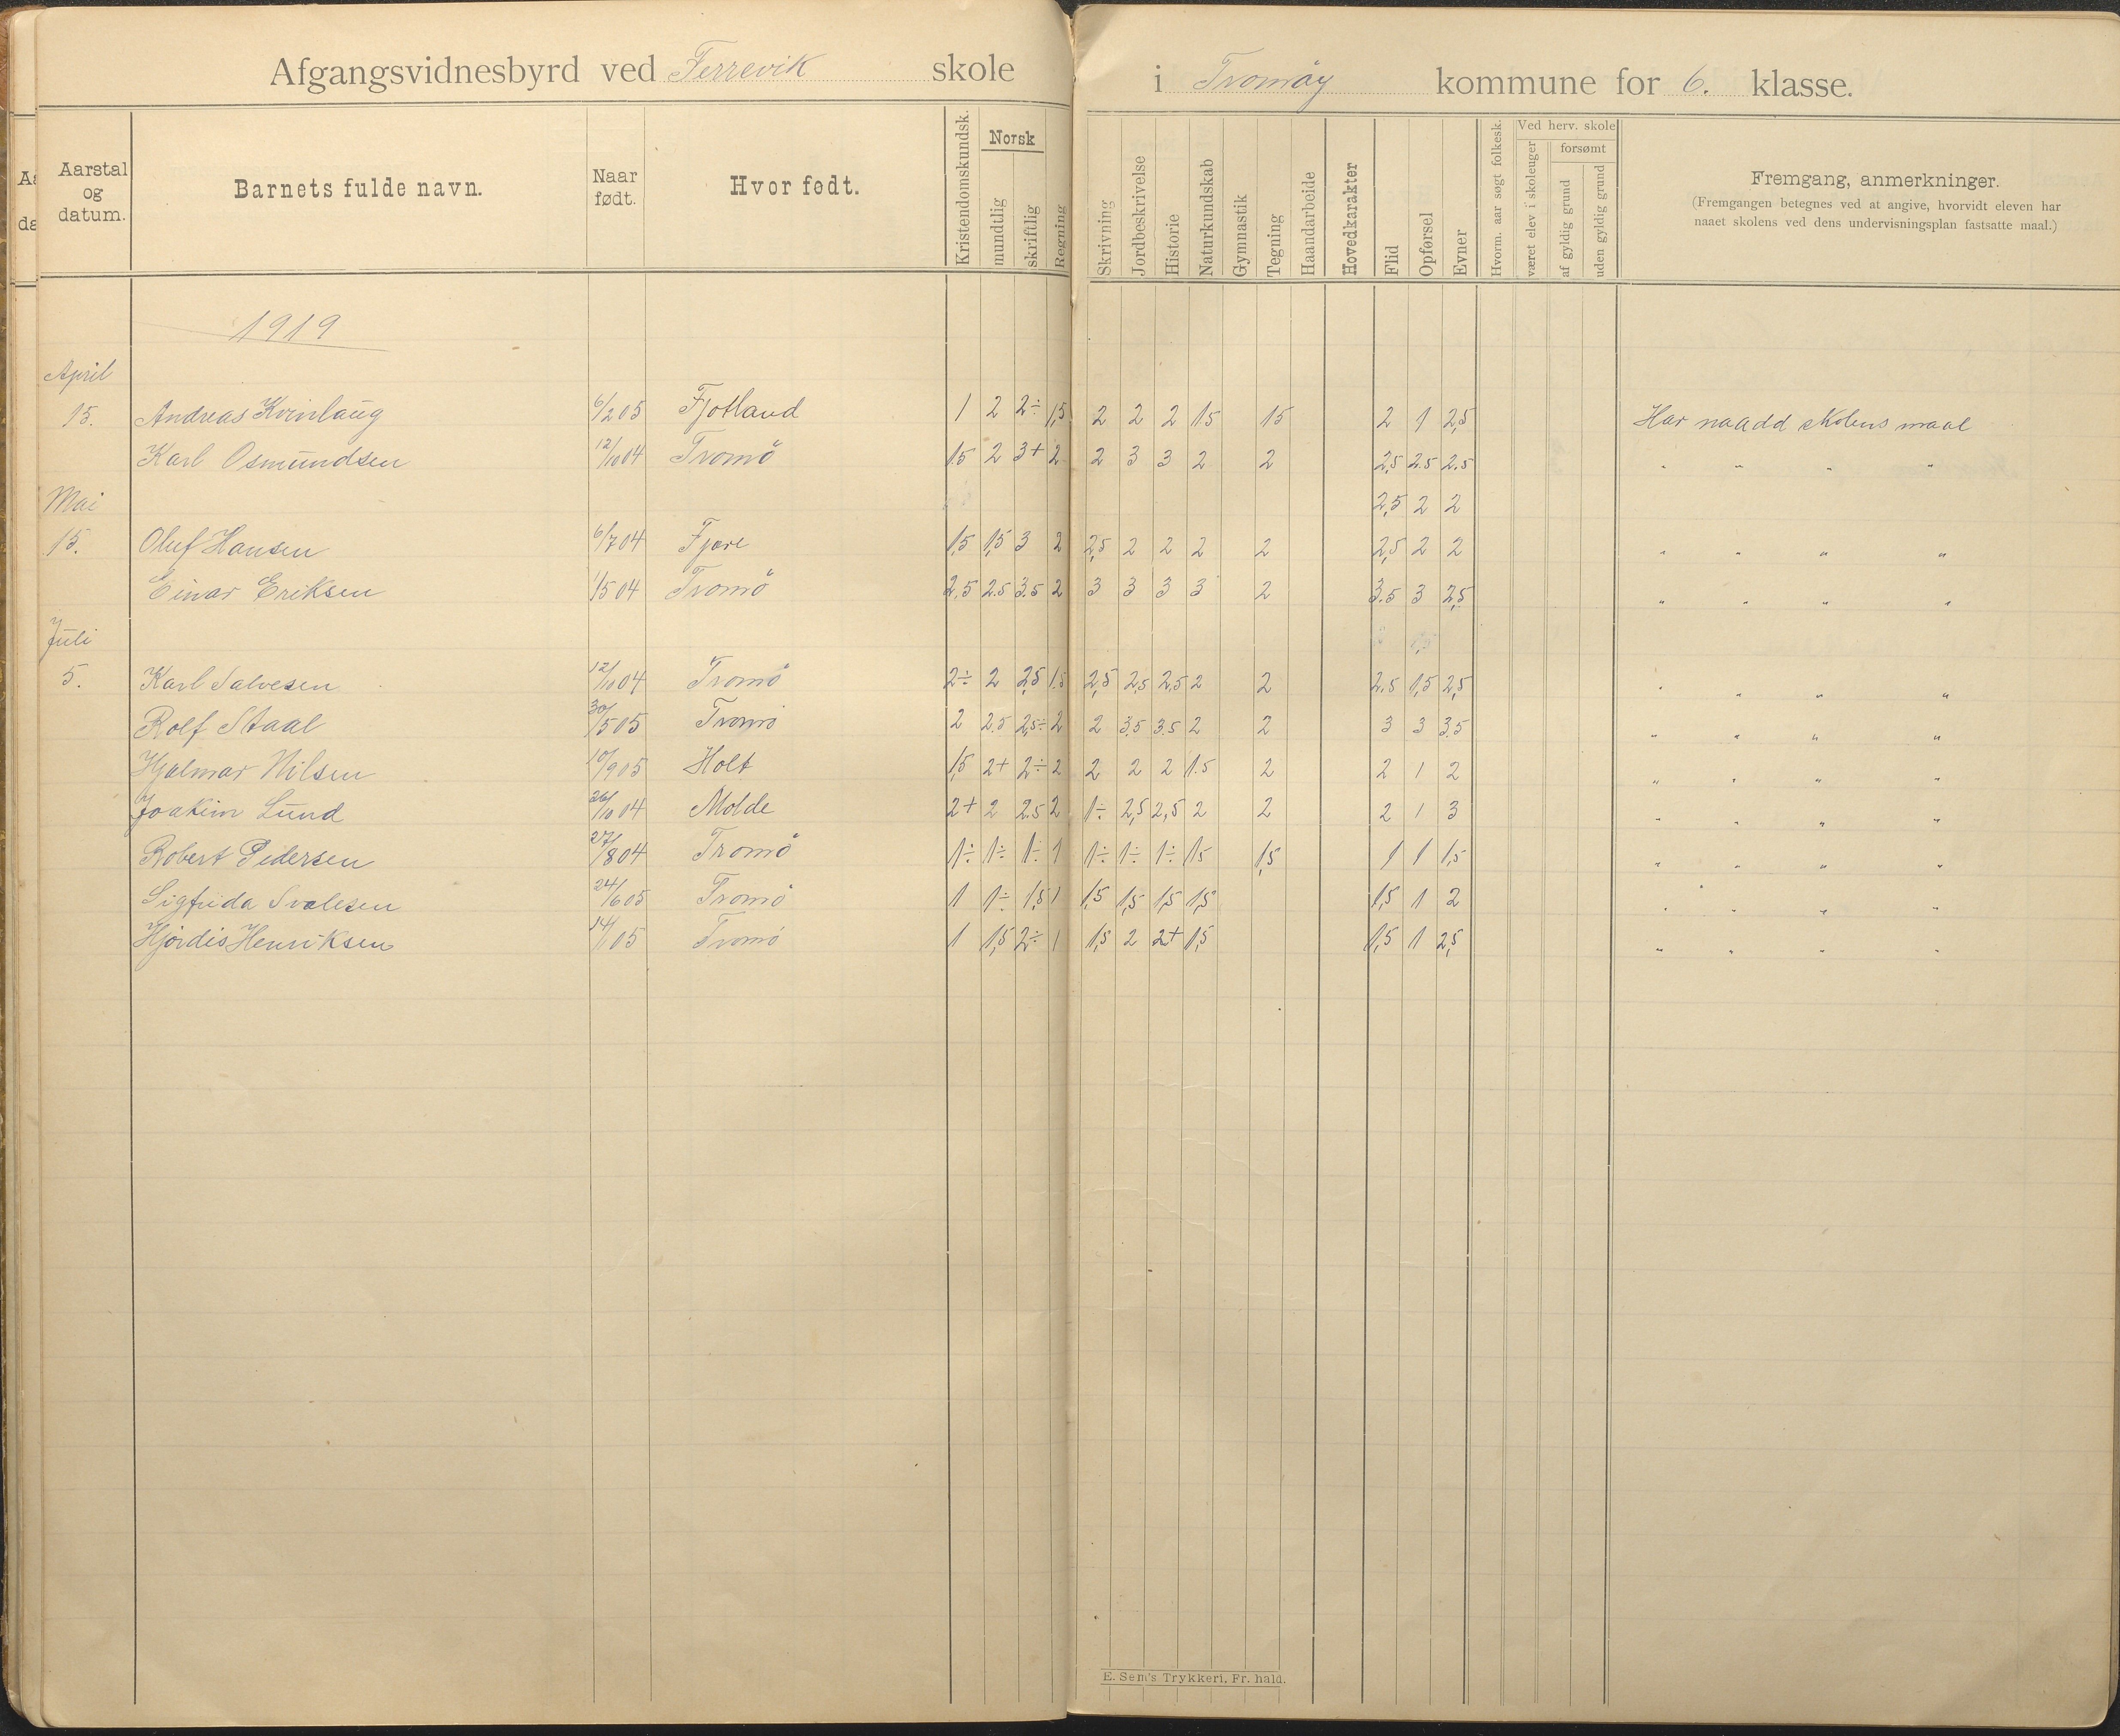 Afgangsvidnesbyrd ved Færevik skole i Tromöy kommune for 6. klasse.
Aarstal og datum.
Barnets fulde navn.
Naar født.
Hvor født.
Kristendomskundsk.
Norsk
mundtlig
skriftlig
Regning
Skrivning
Jordbeskrivelse
Historie
Naturkundskab
Gymnastik
Tegning
Haandarbeide
Hovedkarakter
Flid
Opførsel
Evner
Hvorm. aar søgt folkesk.
Ved herv. skole
været elev i skoleuger
forsømt
af gyldig grund
uden gyldig grund
Fremgang, anmerkninger.
(Fremgangen betegnes ved at angive, hvorvidt eleven har
naaet skolens ved dens undervisningsplan fastsatte maal.)
1919
April
15. Andreas Kvinlaug 6/2 05 Fjotland 1 2 2÷ 1,5 2 2 2 1.5 1.5 2 1 2,5 Har naadd skolens maal
Karl Osmundsen 12/10 04 Tromö 1.5 2 3+ 2 2 3 3 2 2 2,5 2.5 2.5 " " " "
Mai 2,5 2 2
15. Oluf Hansen 6/7 04 Fjære 1,5 1,5 3 2 2,5 2 2 2 2 2,5 2 2 " " " "
Einar Eriksen 1/5 04 Tromö 2,5 2.5 3.5 2 3 3 3 3 2 3.5 3 2,5 " " " "
Juli
5. Karl Salvesen 12/10 04 Tromö 2÷ 2 2,5 1.5 2,5 2,5 2,5 2 2 2.5 1,5 2,5 " " " "
Rolf Staal 30/5 05 Tromö 2 2.5 2,5÷ 2 2 3.5 3.5 2 2 3 3 3.5 " " " "
Hjalmar Nilsen 10/9 05 Holt 1,5 2+ 2÷ 2 2 2 2 1.5 2 2 1 2 " " " "
Joakim Lund 26/10 04 Molde 2+ 2 2.5 2 1÷ 2,5 2,5 2 2 2 1 3 " " " "
Robert Pedersen 27/8 04 Tromö 1÷ 1÷ 1÷ 1 1÷ 1÷ 1÷ 1.5 1,5 1 1 1,5 " " " "
Sigfrida Svalesen 24/6 05 Tromö 1 1÷ 1,5 1 1,5 1,5 1,5 1,5 1,5 1 2 " " " "
Hjördis Henriksen 14/1 05 Tromö 1 1,5 2÷ 1 1,5 2 2+ 1,5 1,5 1 2,5 " " " "
E. Sem's Trykkeri, Fr. hald.